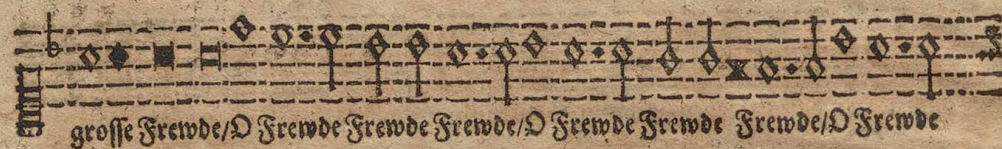 grosse Frewde/O Frewde Frewde Frewde/O Frewde Frewde Frewde/O Frewde